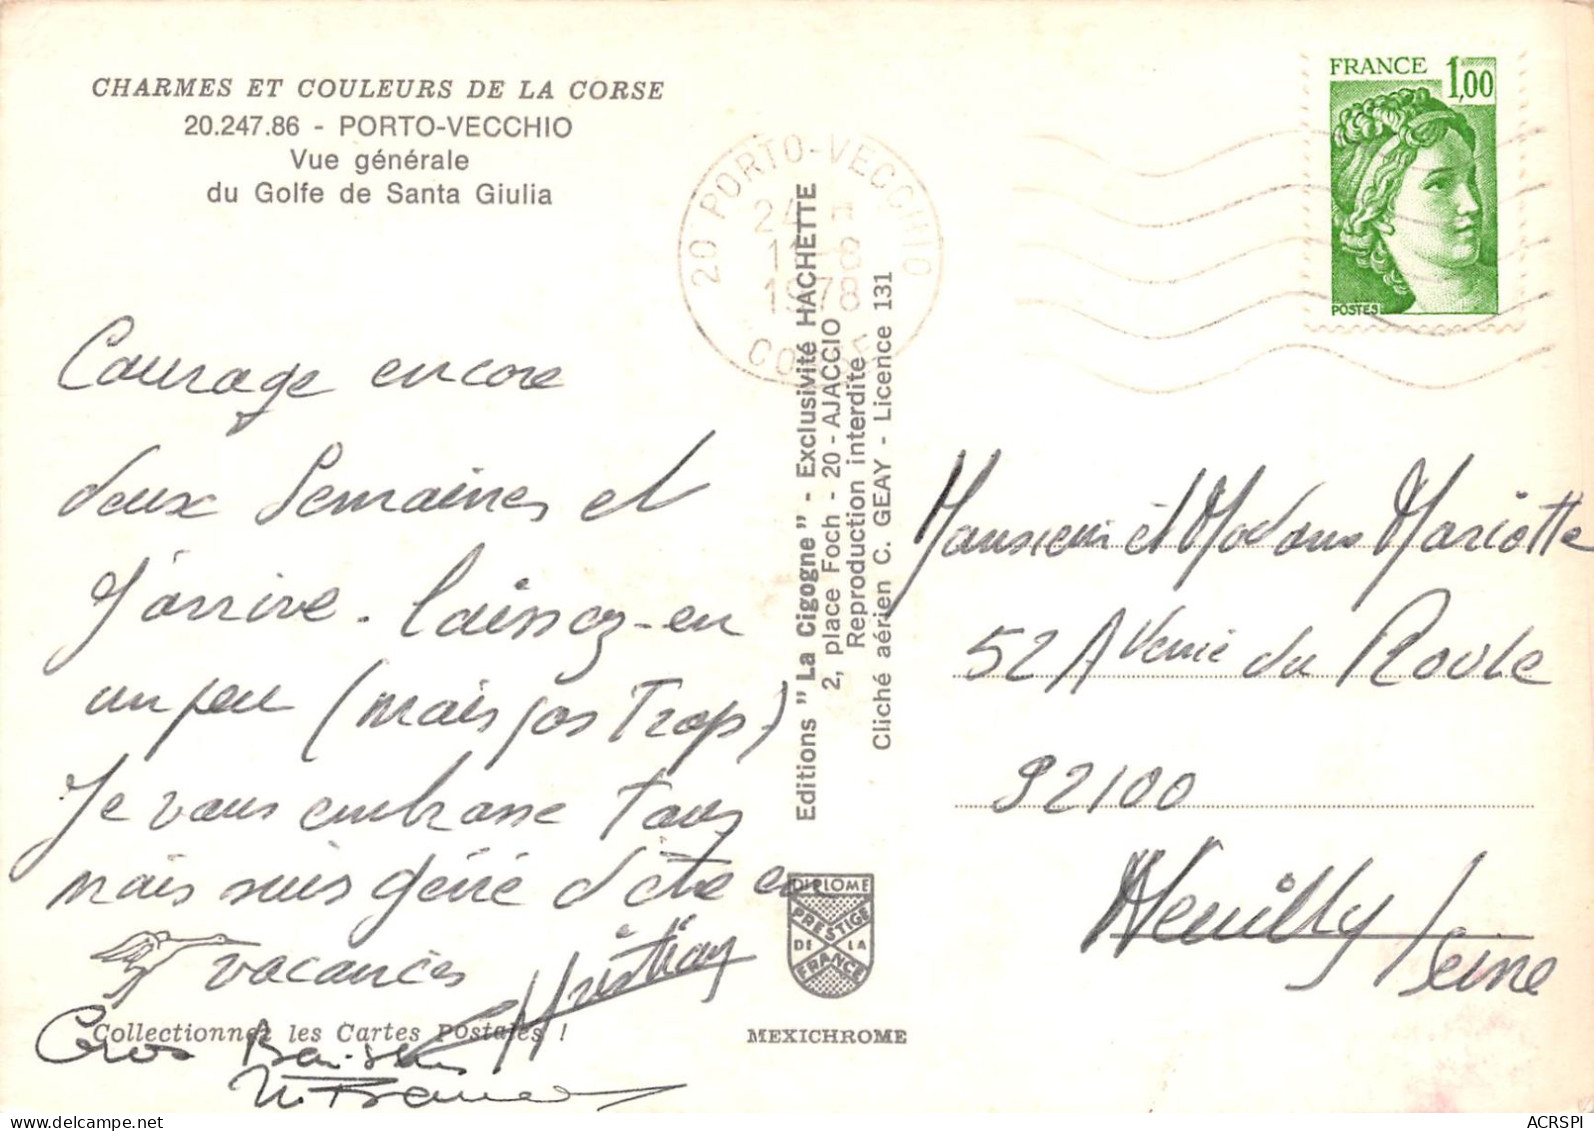 CHARMES ET COULEURS DE LA CORSE
20.247.86 - PORTO-VECCHIO
Vue générale
du Golfe de Santa Giulia
FRANCE 1,00
POSTES
20 PORTO-VECCHIO
24 H
1978
Courage encore
deux Semaines et
J'arrive. laissez-en
un peu (mais pas Trop)
Je vous embrasse Tous
mais suis géné d'être en
vacances
Christian
Gros Baisers
Collectionnez les Cartes Postales !
Editions "La Cigogne" - Exclusivité HACHETTE
2, place Foch - 20 - AJACCIO
Reproduction interdite
Cliché aérien C. GEAY - Licence 131
DIPLOME
PRESTIGE
DE LA
FRANCE
MEXICHROME
Monsieur et Madame Mariotte
52 Avenue du Roule
92100
Neuilly/Seine
delcampe.net
ACRSPI